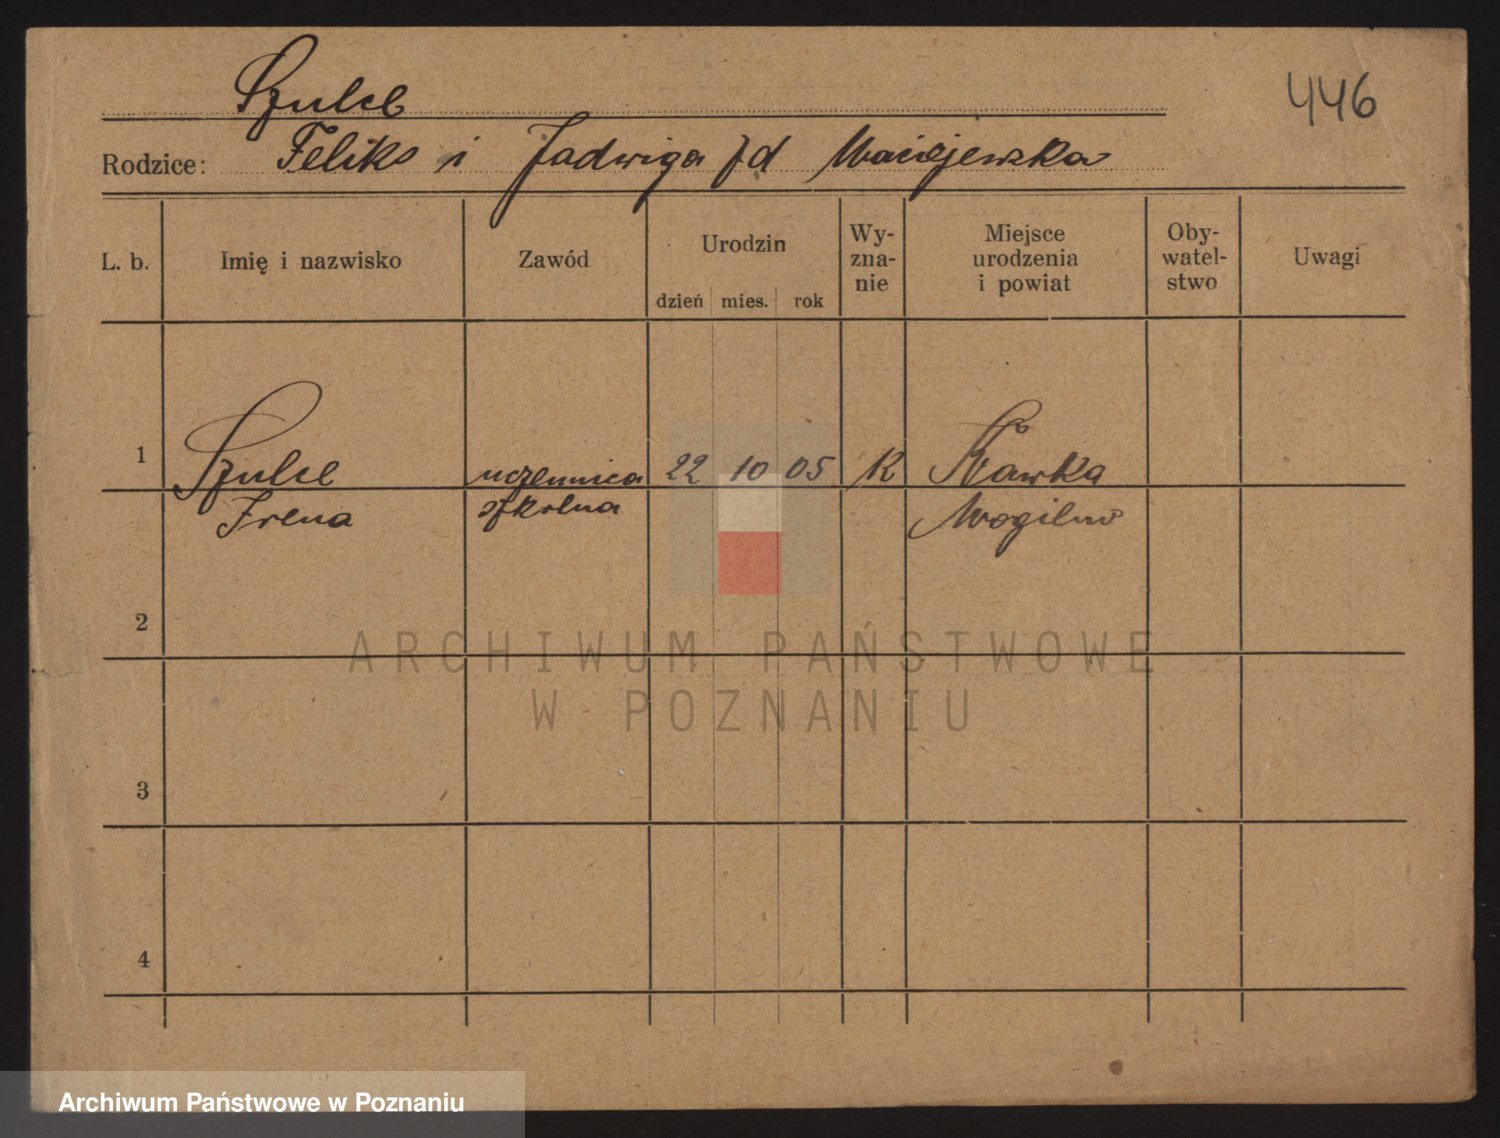 446
Szulc
Rodzice: Feliks i Jadwiga zd Maciejewska
L. b. Imię i nazwisko Zawód Urodzin dzień mies. rok Wy-zna-nie Miejsce urodzenia i powiat Oby-watel-stwo Uwagi
1 Szulc uczennica 22 10 05 K Ławka
Irena szkolna Mogilno
2
ARCHIWUM PAŃSTWOWE
W POZNANIU
3
4
Archiwum Państwowe w Poznaniu